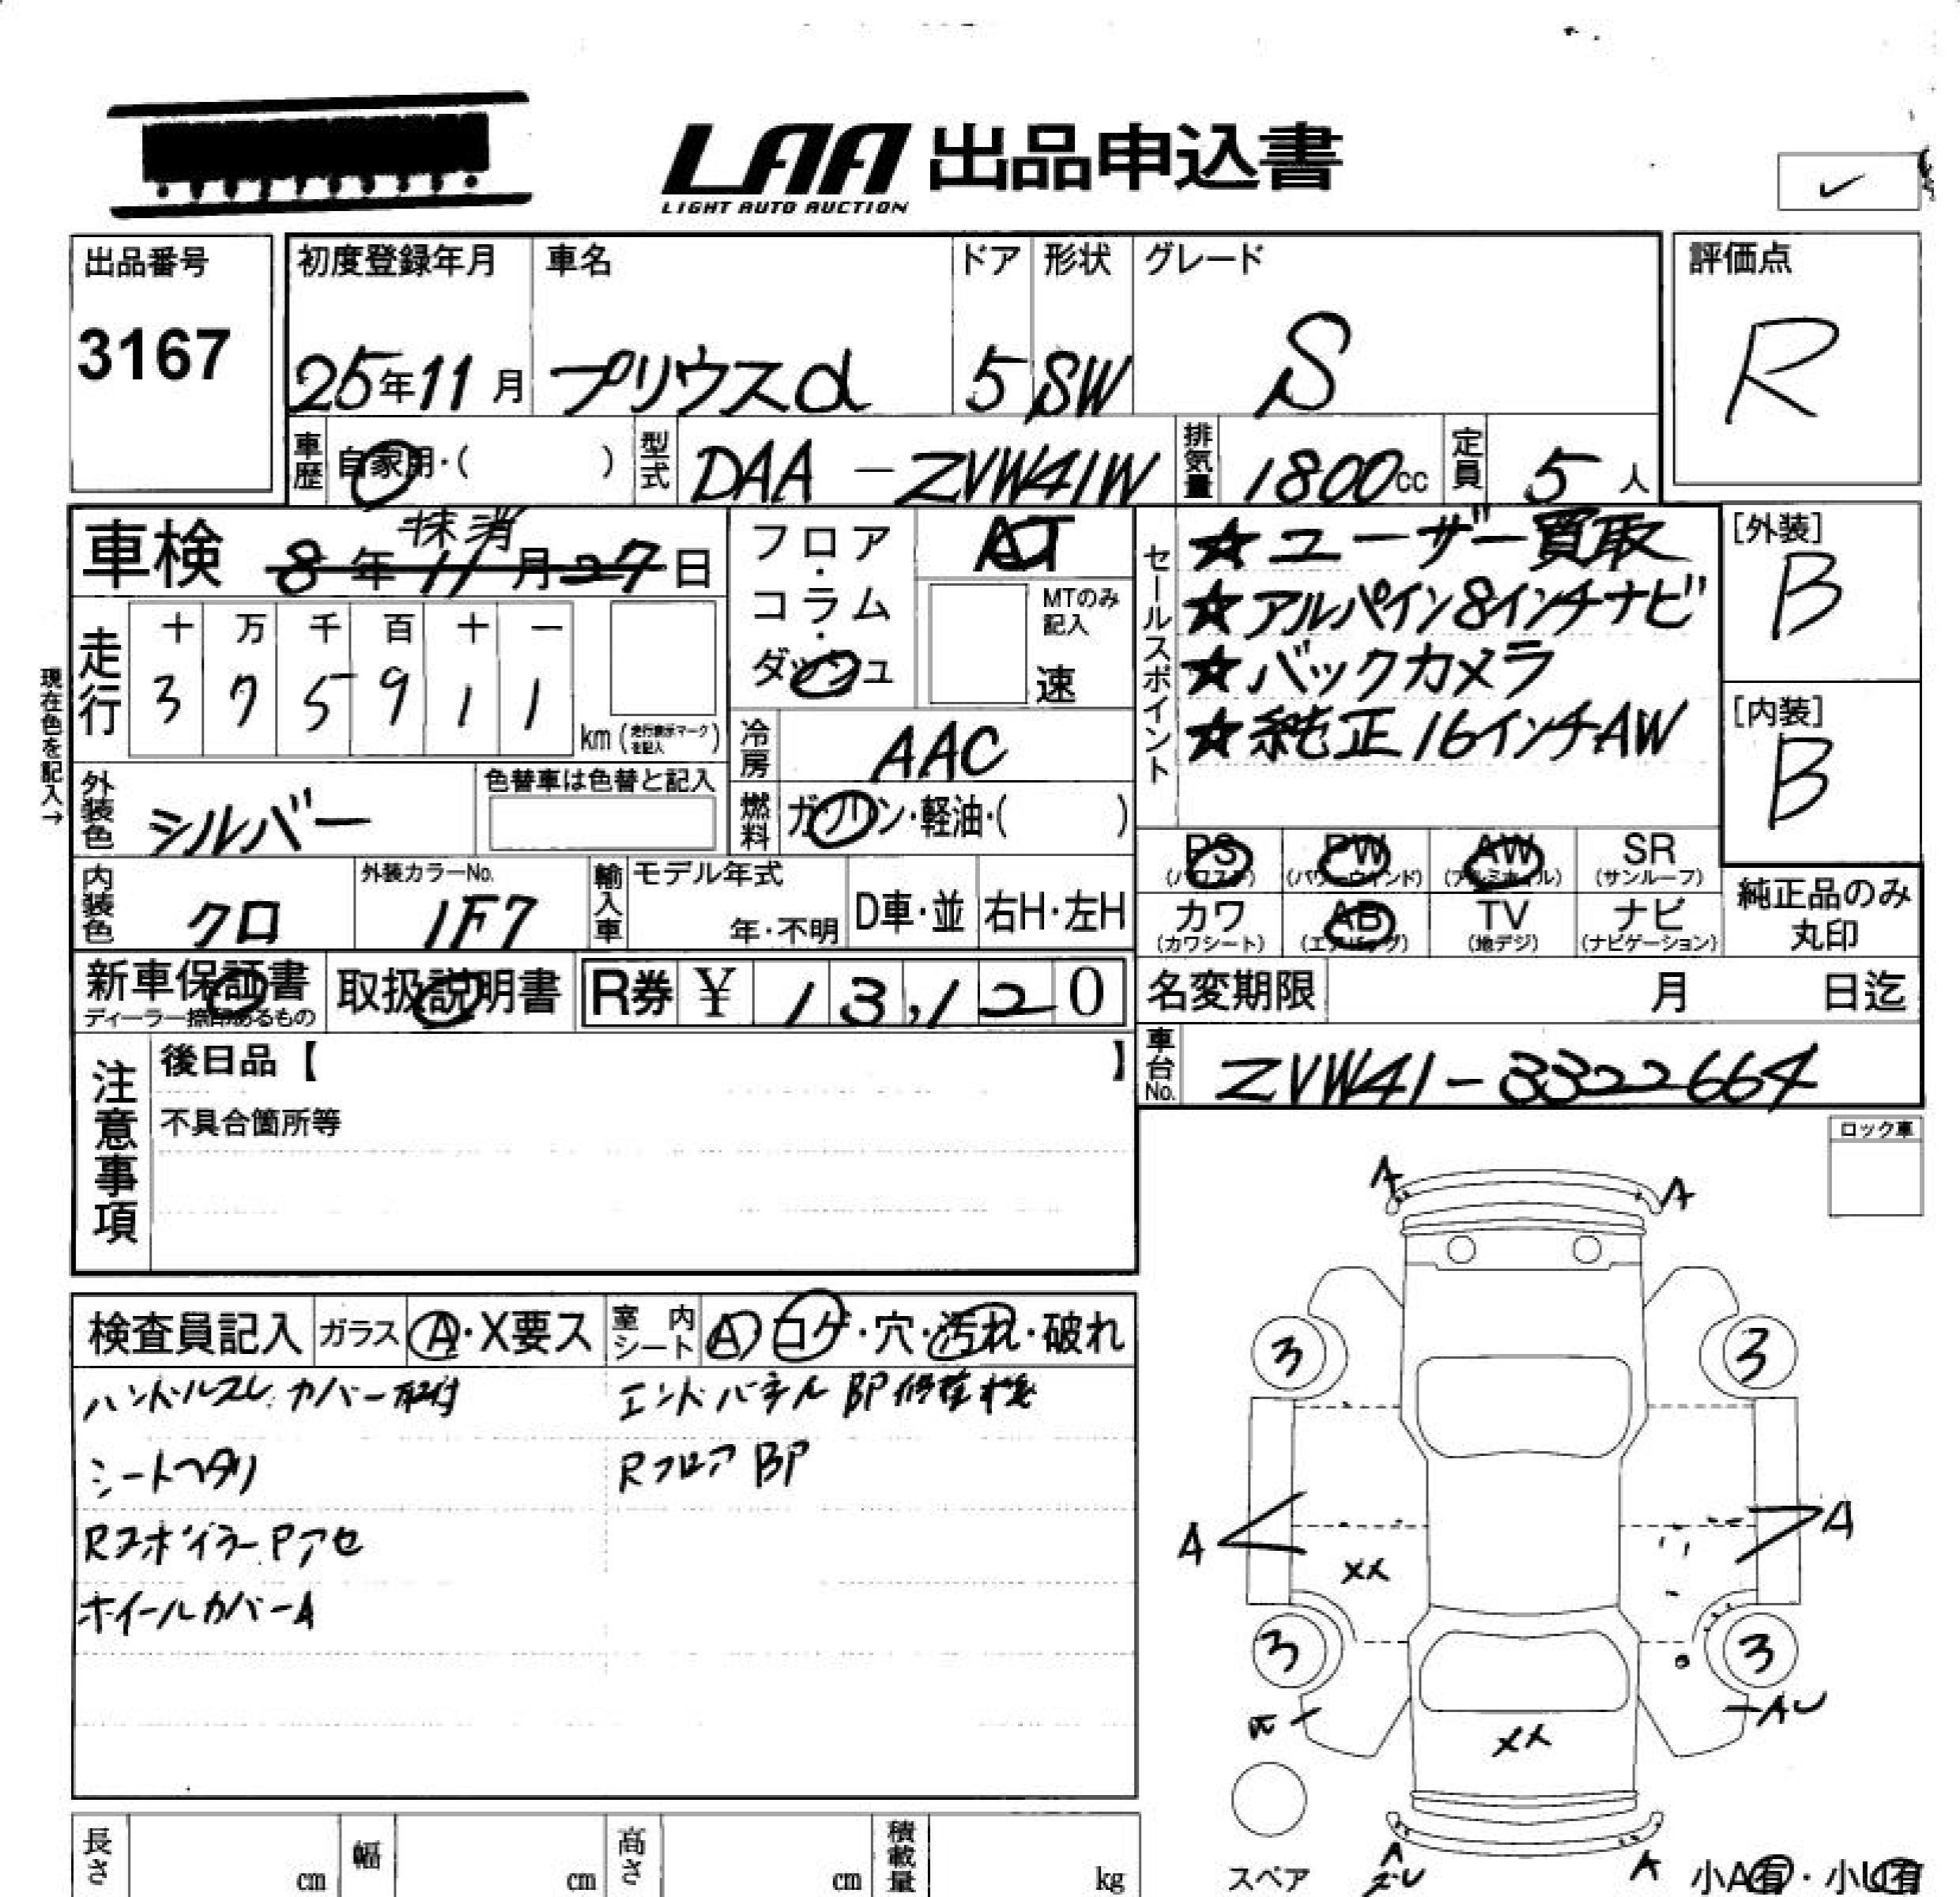 LAA 出品申込書
LIGHT AUTO AUCTION
出品番号 初度登録年月 車名 ドア 形状 グレード 評価点
3167 25年11月 プリウスα 5 SW S R
車歴 自家用・( ) 型式 DAA-ZVW41W 排気量 1800cc 定員 5人
車検 8年11月27日 抹消
フロア・コラム・ダッシュ
AT
MTのみ記入
速
セールスポイント
☆ユーザー買取
☆アルパイン8インチナビ
☆バックカメラ
☆純正16インチAW
[外装]
B
[内装]
B
現在色を記入→
走行 十 万 千 百 十 一
3 7 5 9 1 1 km(走行表示マークを記入)
冷房 AAC
外装色 シルバー 色替車は色替と記入
燃料 ガソリン・軽油・( )
PS AW PW SR
(パワステ) (パワーウインド) (アルミホイル) (サンルーフ)
カワ AB TV ナビ
(カワシート) (エアバッグ) (地デジ) (ナビゲーション)
純正品のみ丸印
内装色 クロ 外装カラーNo. 1F7 輸入車 モデル年式 年・不明 D車・並 右H・左H
新車保証書 取扱説明書 R券 ¥ 13,120 名変期限 月 日迄
ディーラー捺印あるもの
車台No. ZVW41-3322664
注意事項
後日品【 】
不具合箇所等
ロック車
検査員記入 ガラス A・X要ス 室内シート A コゲ・穴・汚れ・破れ
ハンドルスレ カバー取付 エンドパネル BP修整機
シートヘタリ Rフロア BP
Rスポイラー Pアセ
ホイールカバーA
A A
3 3
A A
XX
3 3
AU
XX
A A
スペア
小A有・小U有
長さ cm 幅 cm 高さ cm 積載量 kg